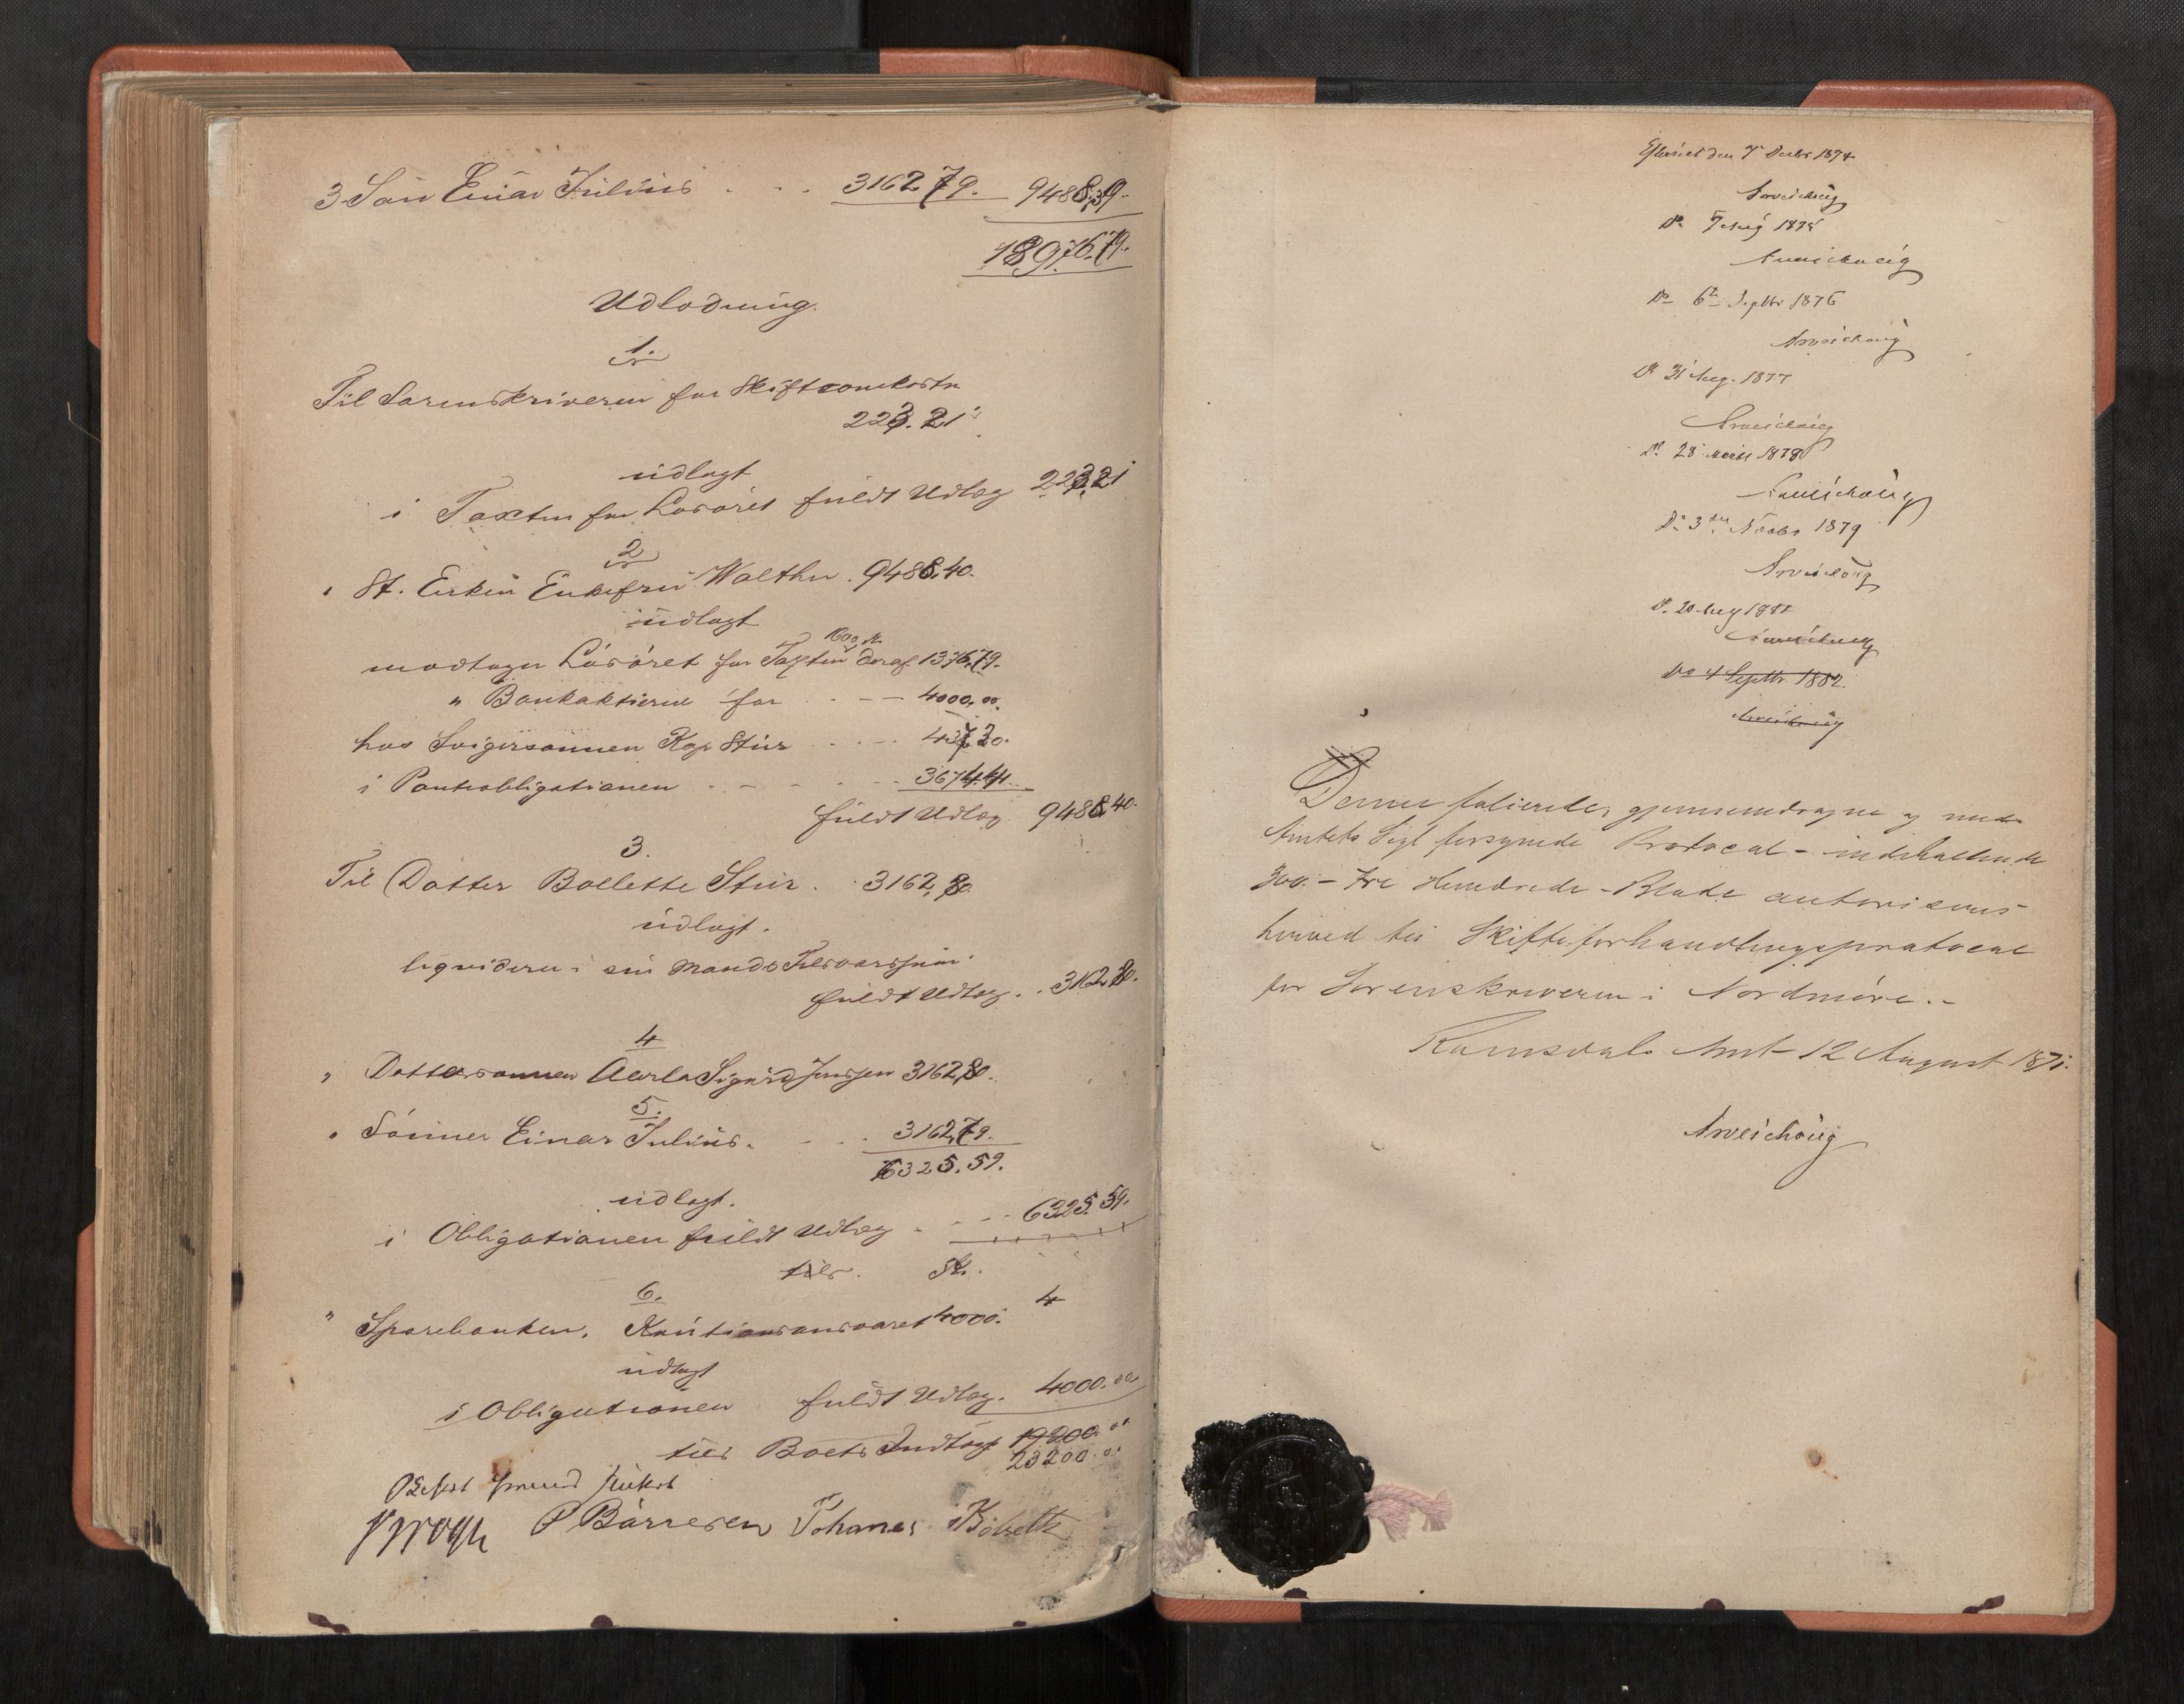 3. Søn Einar Julius . . . 3162,79. 9488,39.
18976.79.
Udlodning.
1.
Til Sorenskriveren for Skifteomkostn
223.21
udlagt
i Taxten for Løsøret fuldt Udlæg 223,21
2
" St. Enken Enkefru Walther. 9488,40.
udlagt
1600 Kr
modtager Løsøret for Taxten deraf 1376,79.
" Bankaktierne for . - - 4000,00.
hos Svigersønnen Kap Stür . . . . 437,20.
i Panteobligationen . - - . - - 3674.41.
fuldt Udlæg 9488,40.
3.
Til Datter Bollette Stür . . 3162,80.
udlagt.
liqvideres i sin Mands Tilsvarssum.
fuldt Udlæg . . 3162,80.
4
" Dattersønnen Sigurd Jenssen 3162,80.
5.
" Sønnen Einar Julius. - . . 3162,79.
6325.59.
udlagt.
i Obligationen fuldt Udlæg . - - - 6325.59.
6.
" Sparebanken. Kautionsansvaret 4000.
udlagt
i Obligationen fuldt Udlæg. 4000.00
Boets Indtægt 19200.00
23200.00
sluttet
P Barresen Johannes
Efterseet den 7 Decbr 1874
Arveschoug
Do 7 Aug 1875
Arveschoug
Do 6te Septbr 1876
Arveschoug
Do 31 Aug. 1877
Arveschoug
Do 28 1878
Arveschoug
Do 3die 1879
Arveschoug
Do 20 Aug 1881
Arveschoug
Do 4 Septbr 1882.
Arveschoug
Denne folierede, gjennemdragne og med
Amtets Segl forsynede Protocol - indeholdende
300. - tre Hundrede - Blade autoriseres
herved til Skifteforhandlingsprotocol
for Sorenskriveren i Nordmøre. -
Romsdals Amt 12 August 1871.
Arveschoug